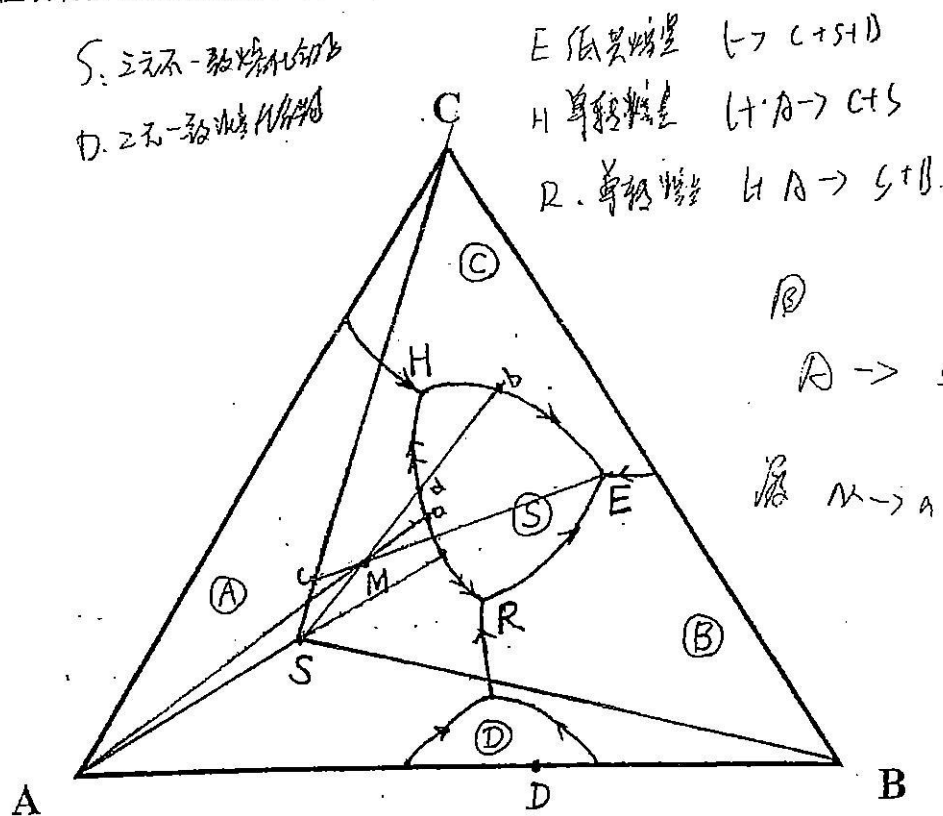 S: 三元不一致熔化合物
D: 二元一致熔化合物
E 低共熔点 L→ C+S+B
H 单转熔点 L+A→ C+S
R. 单转熔点 L+A→ S+B.
C
Ⓒ
Ⓑ
A →
H
b
d
a
E
Ⓢ
M→a
c
M
Ⓐ
R
Ⓑ
S
Ⓓ
A
D
B